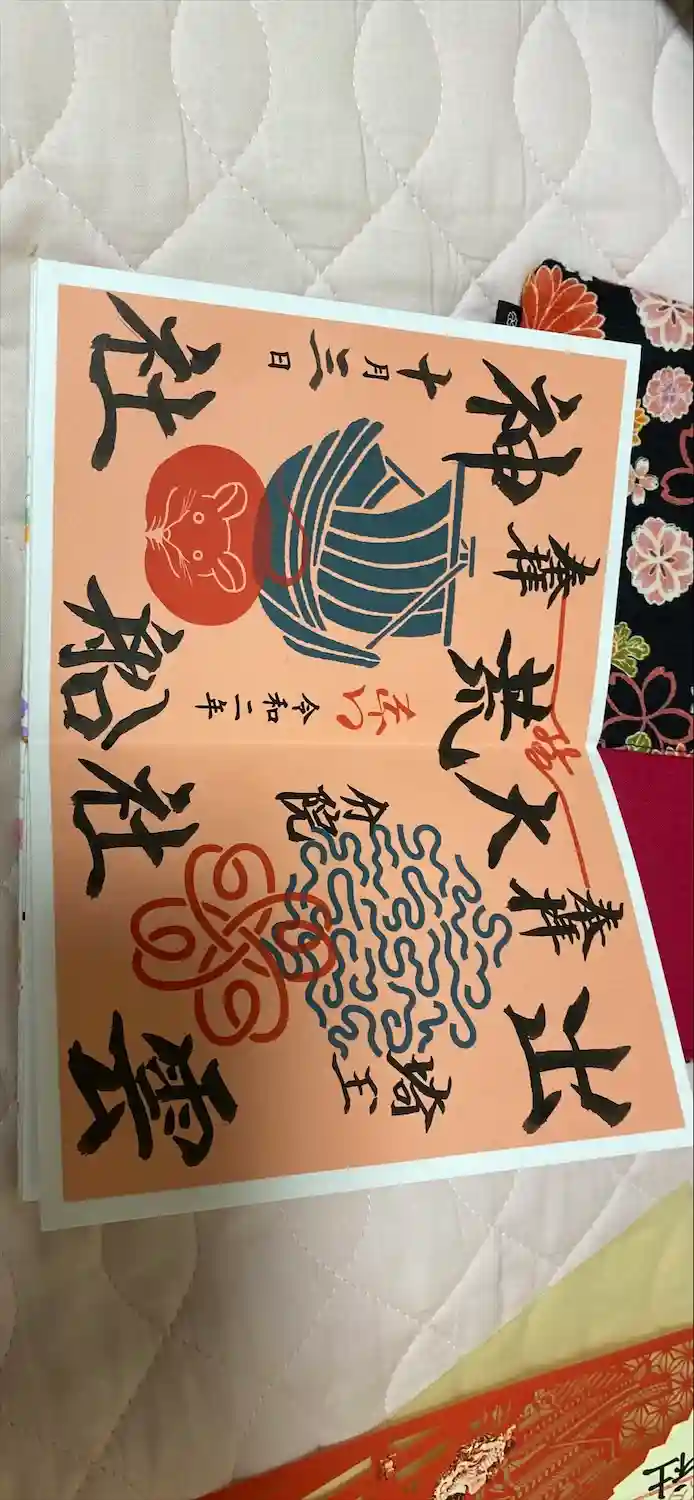 出雲
奉拝
埼玉
分院
大社
荒船
奉拝
神社
令和二年
十月三日
社